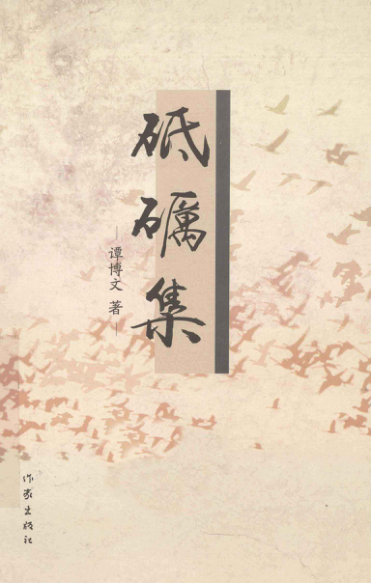 砥砺集
谭博文 著
作家出版社